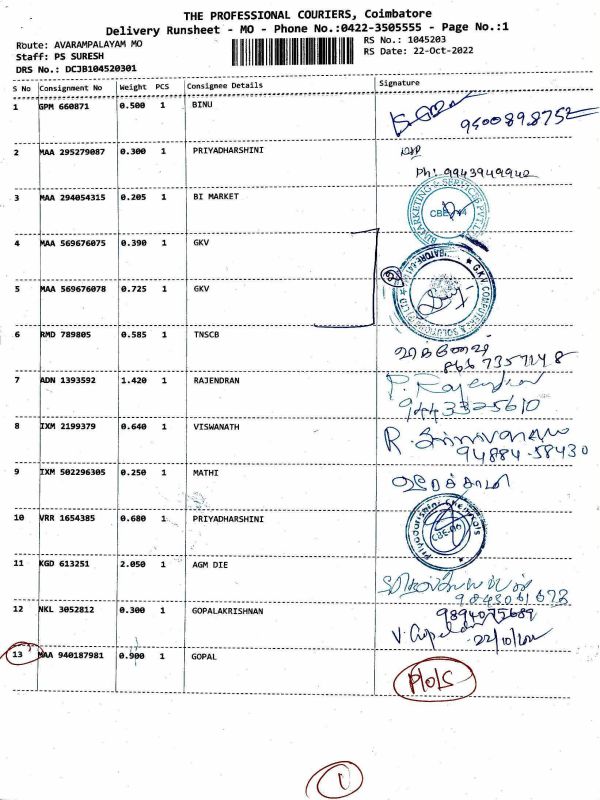 THE PROFESSIONAL COURIERS, Coimbatore
Delivery Runsheet - MO - Phone No.:0422-3505555 - Page No.:1
Route: AVARAMPALAYAM MO
RS No.: 1045203
Staff: PS SURESH
RS Date: 22-Oct-2022
DRS No.: DCJB104520301
S No Consignment No Weight PCS Consignee Details Signature
1 GPM 660871 0.500 1 BINU
9500898752
2 MAA 295279087 0.300 1 PRIYADHARSHINI
Ph: 9943949942
3 MAA 294054315 0.205 1 BI MARKET
4 MAA 569676075 0.390 1 GKV
5 MAA 569676078 0.725 1 GKV
GKV COMPUTER & SOLUTION (P) LTD
6 RMD 789805 0.585 1 TNSCB
7 ADN 1393592 1.420 1 RAJENDRAN
P. Rajendran
9443325610
8 IXM 2199379 0.640 1 VISWANATH
94884-58430
9 IXM 502296305 0.250 1 MATHI
10 VRR 1654385 0.680 1 PRIYADHARSHINI
11 KGD 613251 2.050 1 AGM DIE
9843061678
12 NKL 3052812 0.300 1 GOPALAKRISHNAN
9894075689
13 MAA 940187981 0.900 1 GOPAL
1